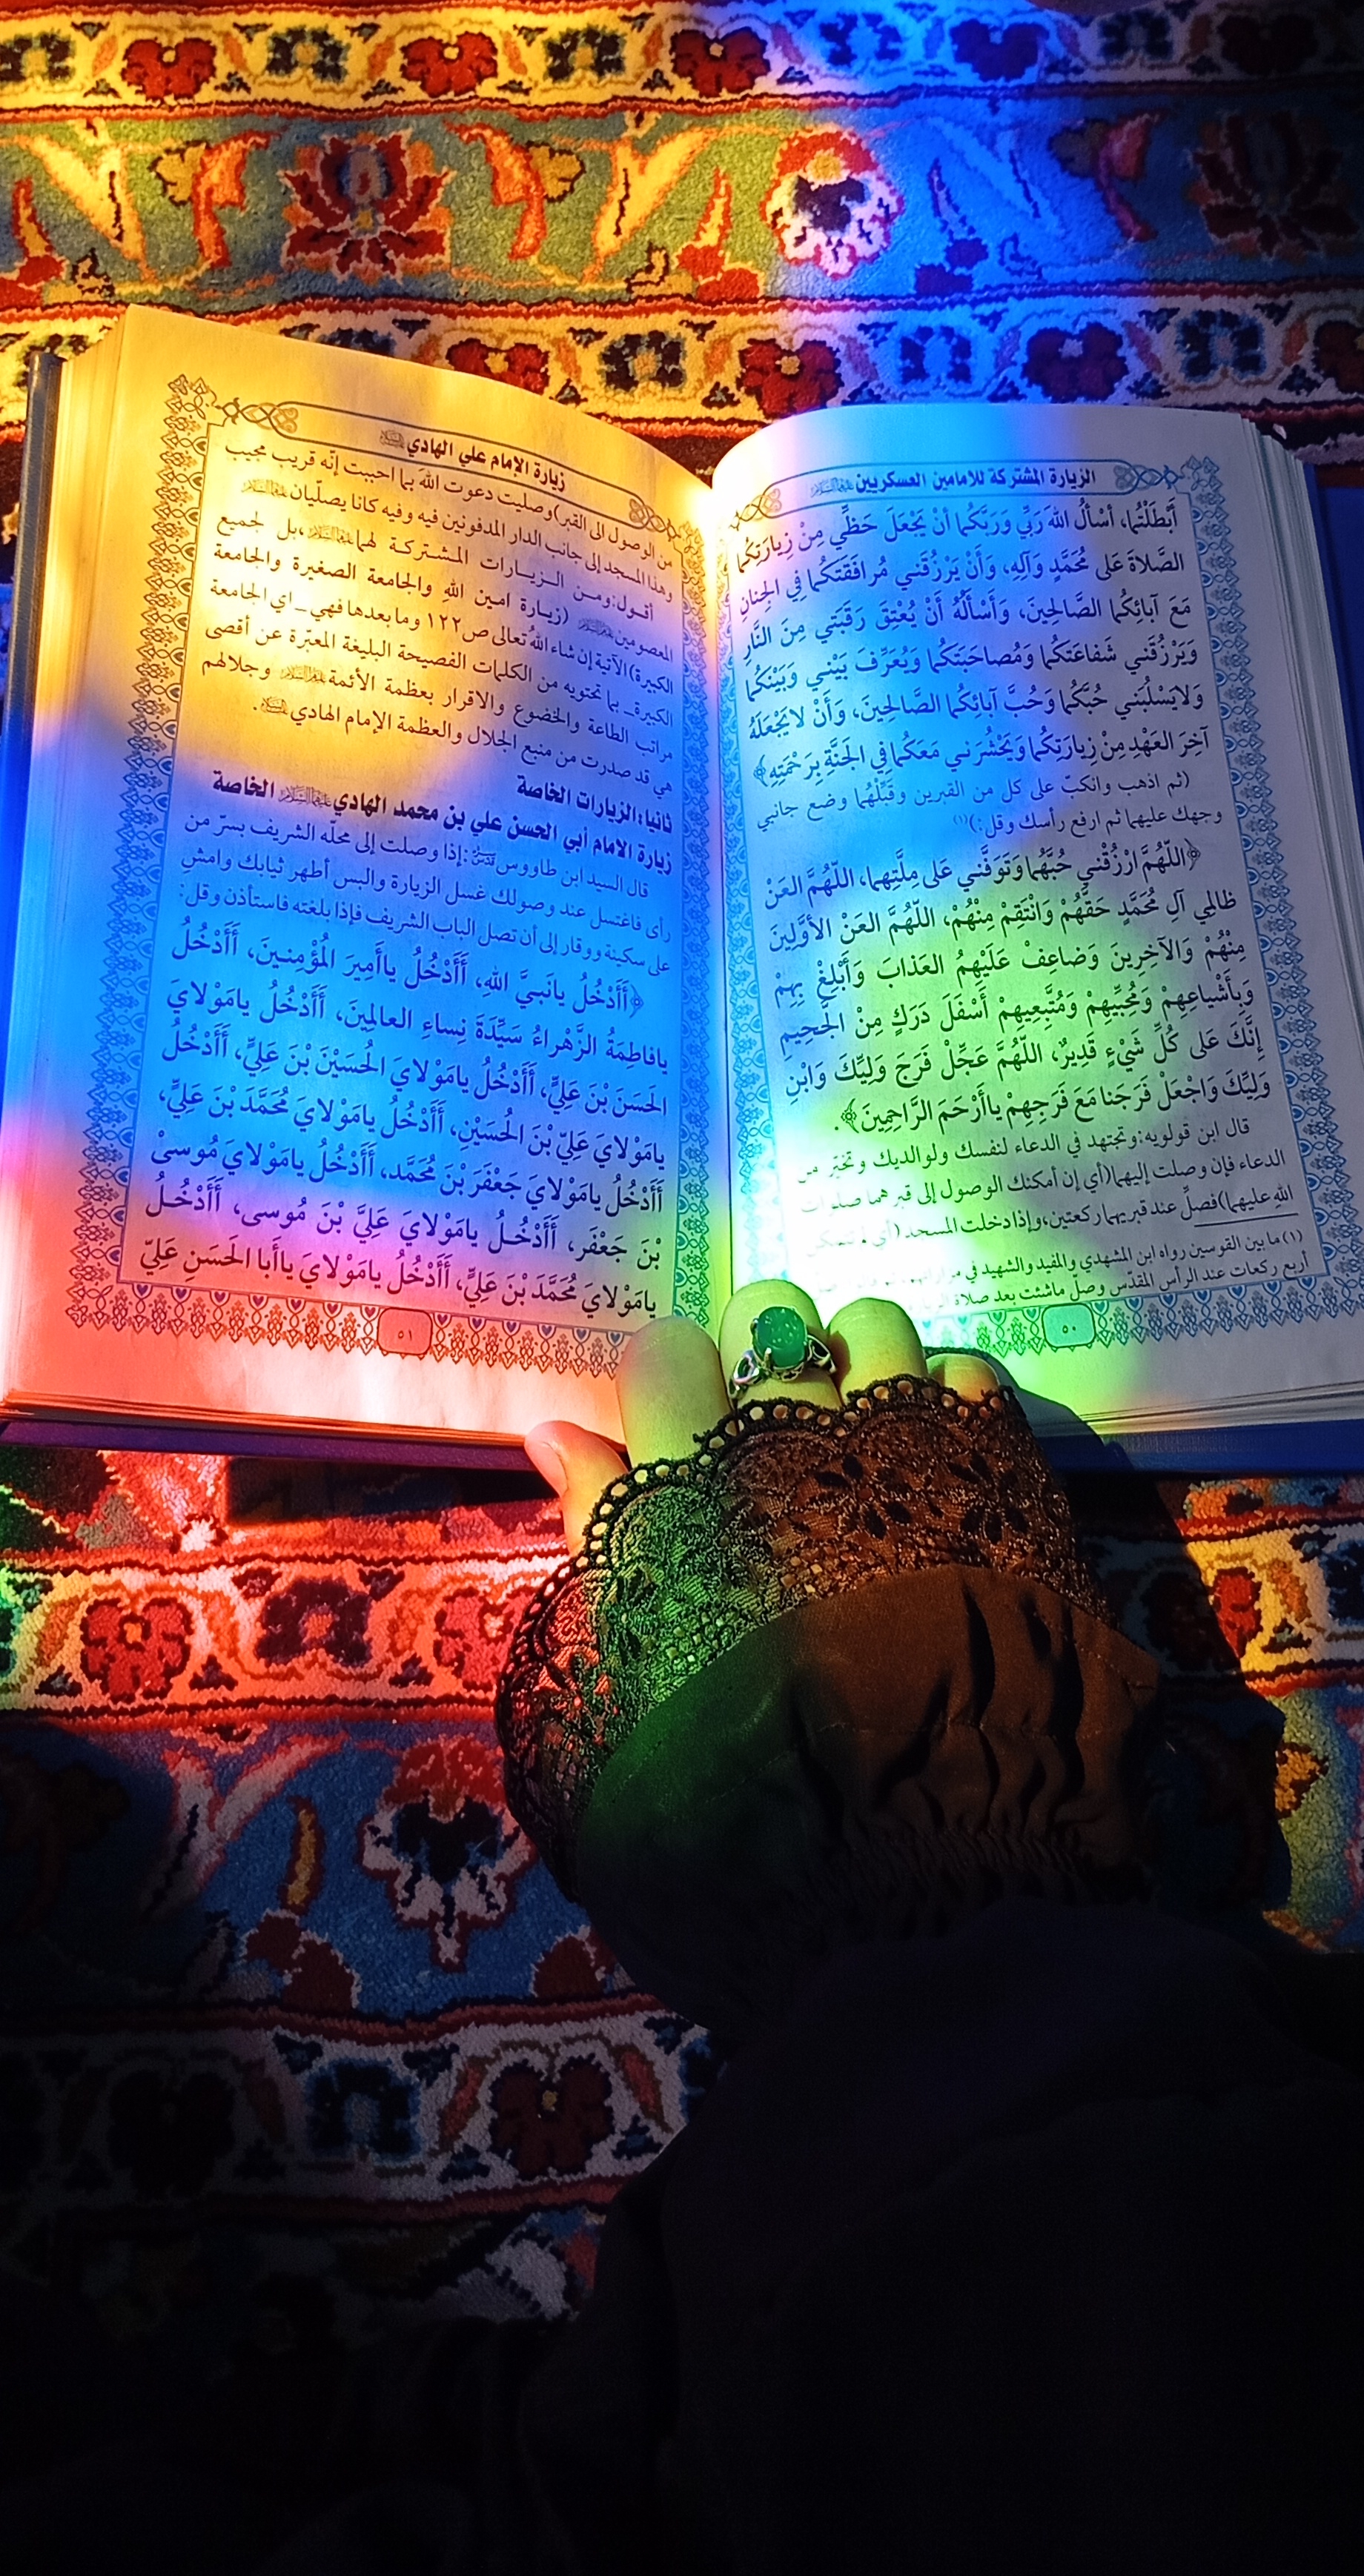 الزيارة المشتركة للامامين العسكريين عليهما السلام
أَبْطَلْتُما، أسْأَلُ اللهَ رَبِّي وَرَبَّكُما أنْ يَجْعَلَ حَظِّي مِنْ زِيارَتِكُما
الصَّلاةَ عَلى مُحَمَّدٍ وَآلِهِ، وَأَنْ يَرْزُقَني مُرافَقَتَكُما فِي الجِنانِ
مَعَ آبائِكُما الصَّالِحِينَ، وَأَسْأَلُهُ أَنْ يُعْتِقَ رَقَبَتي مِنَ النَّارِ
وَيَرْزُقَني شَفاعَتَكُما وَمُصاحَبَتَكُما وَيُعَرِّفَ بَيْني وَبَيْنَكُما
وَلايَسْلُبَني حُبَّكُما وَحُبَّ آبائِكُما الصَّالِحِينَ، وَأَنْ لايَجْعَلَهُ
آخِرَ العَهْدِ مِنْ زِيارَتِكُما وَيَحْشُرَني مَعَكُما فِي الجَنَّةِ بِرَحْمَتِهِ﴾
(ثم اذهب وانكبّ على كل من القبرين وقَبِّلْهُما وضع جانبي
وجهك عليهما ثم ارفع رأسك وقل:)(١)
﴿اللّهُمَّ ارْزُقْني حُبَّهُما وَتَوَفَّني عَلى مِلَّتِهِما، اللّهُمَّ العَنْ
ظالِمِي آلِ مُحَمَّدٍ حَقَّهُمْ وَانْتَقِمْ مِنْهُمْ، اللّهُمَّ العَنْ الأوَّلِينَ
مِنْهُمْ وَالآخِرِينَ وَضاعِفْ عَلَيْهِمُ العَذابَ وَأَبْلِغْ بِهِمْ
وَبِأَشْياعِهِمْ وَمُحِبِّيهِمْ وَمُتَّبِعِيهِمْ أَسْفَلَ دَرَكٍ مِنْ الجَحِيمِ
إِنَّكَ عَلى كُلِّ شَيْءٍ قَدِيرٌ، اللّهُمَّ عَجِّلْ فَرَجَ وَلِيِّكَ وَابْنِ
وَلِيِّكَ وَاجْعَلْ فَرَجَنا مَعَ فَرَجِهِمْ ياأَرْحَمَ الرَّاحِمِينَ﴾.
قال ابن قولويه: وتجتهد في الدعاء لنفسك ولوالديك وتخيّر من
الدعاء فإن وصلت إليهما (أي إن أمكنك الوصول إلى قبرهما صلوات
الله عليهما) فصلِّ عند قبريهما ركعتين، وإذا دخلت المسجد (أي لم تتمكن
(١) ما بين القوسين رواه ابن المشهدي والمفيد والشهيد في
أربع ركعات عند الرأس المقدّس وصلّ ماشئت بعد صلاة
٥٠
زيارة الإمام علي الهادي عليه السلام
من الوصول الى القبر) وصليت دعوت الله بما احببت إنّه قريب مجيب
وهذا المسجد إلى جانب الدار المدفونين فيه وفيه كانا يصلّيان عليهما السلام
أقول: ومن الزيارات المشتركة لهما عليهما السلام، بل لجميع
المعصومين عليهم السلام (زيارة امين اللهِ والجامعة الصغيرة والجامعة
الكبيرة) الآتية إن شاء اللهُ تعالى ص١٢٢ وما بعدها فهي _ اي الجامعة
الكبيرة _ بما تحتويه من الكلمات الفصيحة البليغة المعبّرة عن أقصى
مراتب الطاعة والخضوع والاقرار بعظمة الأئمة عليهم السلام وجلالهم
هي قد صدرت من منبع الجلال والعظمة الإمام الهادي عليه السلام.
ثانيا: الزيارات الخاصة
زيارة الامام أبي الحسن علي بن محمد الهادي عليهما السلام الخاصة
قال السيد ابن طاووس قدس سره: إذا وصلت إلى محلّه الشريف بسرّ من
رأى فاغتسل عند وصولك غسل الزيارة والبس أطهر ثيابك وامشِ
على سكينة ووقار إلى أن تصل الباب الشريف فإذا بلغته فاستأذن وقل:
﴿أَأَدْخُلُ يانَبِيَّ اللهِ، أَأَدْخُلُ ياأَمِيرَ المُؤْمِنِينَ، أَأَدْخُلُ
يافاطِمَةُ الزَّهْراءُ سَيِّدَةَ نِساءِ العالَمِينَ، أَأَدْخُلُ يامَوْلايَ
الحَسَنَ بْنَ عَلِيٍّ، أَأَدْخُلُ يامَوْلايَ الحُسَيْنَ بْنَ عَلِيٍّ، أَأَدْخُلُ
يامَوْلايَ عَلِيَّ بْنَ الحُسَيْنِ، أَأَدْخُلُ يامَوْلايَ مُحَمَّدَ بْنَ عَلِيٍّ،
أَأَدْخُلُ يامَوْلايَ جَعْفَرَ بْنَ مُحَمَّد، أَأَدْخُلُ يامَوْلايَ مُوسىٰ
بْنَ جَعْفَر، أَأَدْخُلُ يامَوْلايَ عَلِيَّ بْنَ مُوسى، أَأَدْخُلُ
يامَوْلايَ مُحَمَّدَ بْنَ عَلِيٍّ، أَأَدْخُلُ يامَوْلايَ ياأَبا الحَسَنِ عَلِيَّ
٥١